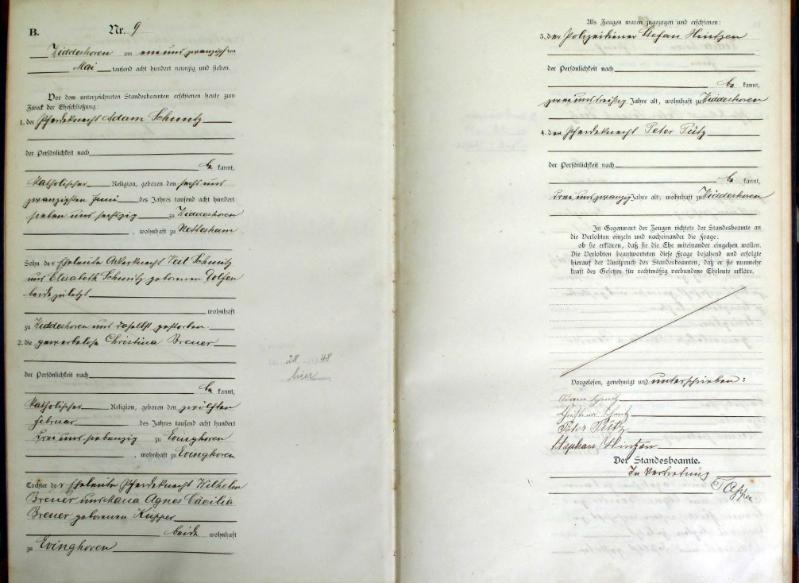 B. Nr. 9
Widdeshoven am ein und zwanzigsten
Mai tausend acht hundert neunzig und sieben.
Vor dem unterzeichneten Standesbeamten erschienen heute zum
Zweck der Eheschließung:
1. der Pferdeknecht Adam Schmitz
der Persönlichkeit nach
be kannt,
katholischer Religion, geboren den sechs und
zwanzigsten Juni des Jahres tausend acht hundert
sieben und sechzig zu Widdeshoven
, wohnhaft zu Nettesheim
Sohn der Eheleute Ackerknecht Veit Schmitz
und Elisabeth Schmitz geborenen
beide zuletzt
wohnhaft
zu Widdeshoven und daselbst gestorben.
2. die gewerbelose Christina Breuer
der Persönlichkeit nach
be kannt,
katholischer Religion, geboren den zwölften
Februar des Jahres tausend acht hundert
drei und siebenzig zu Evinghoven
, wohnhaft zu Evinghoven
Tochter der Eheleute Pferdeknecht Wilhelm
Breuer und Agnes Cäcilia
Breuer geborenen Küpper
beide wohnhaft
zu Evinghoven
28 48
Als Zeugen waren zugezogen und erschienen:
3. der Polizeidiener Stefan Hintzen
der Persönlichkeit nach
be kannt,
zwei und dreißig Jahre alt, wohnhaft zu Widdeshoven
4. der Pferdeknecht Peter Pütz
der Persönlichkeit nach
be kannt,
drei und zwanzig Jahre alt, wohnhaft zu Widdeshoven
In Gegenwart der Zeugen richtete der Standesbeamte an
die Verlobten einzeln und nacheinander die Frage:
ob sie erklären, daß sie die Ehe miteinander eingehen wollen.
Die Verlobten beantworteten diese Frage bejahend und erfolgte
hierauf der Ausspruch des Standesbeamten, daß er sie nunmehr
kraft des Gesetzes für rechtmäßig verbundene Eheleute erkläre.
Vorgelesen, genehmigt und unterschrieben:
Adam Schmitz
Christina Schmitz
Peter Pütz
Stephan Hintzen
Der Standesbeamte.
In Vertretung